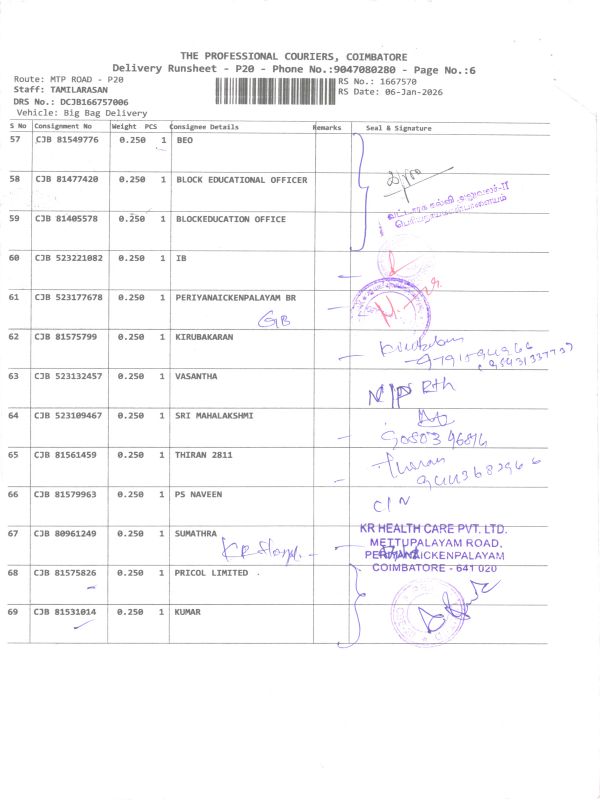 THE PROFESSIONAL COURIERS, COIMBATORE
Delivery Runsheet - P20 - Phone No.:9047080280 - Page No.:6
Route: MTP ROAD - P20
RS No.: 1667570
Staff: TAMILARASAN
RS Date: 06-Jan-2026
DRS No.: DCJB166757006
Vehicle: Big Bag Delivery
S No Consignment No Weight PCS Consignee Details Remarks Seal & Signature
57 CJB 81549776 0.250 1 BEO
58 CJB 81477420 0.250 1 BLOCK EDUCATIONAL OFFICER
59 CJB 81405578 0.250 1 BLOCKEDUCATION OFFICE
வட்டாரக் கல்வி அலுவலர்-II
பெரியநாயக்கன்பாளையம்
60 CJB 523221082 0.250 1 IB
61 CJB 523177678 0.250 1 PERIYANAICKENPALAYAM BR
GB
62 CJB 81575799 0.250 1 KIRUBAKARAN
63 CJB 523132457 0.250 1 VASANTHA
N/P
64 CJB 523109467 0.250 1 SRI MAHALAKSHMI
65 CJB 81561459 0.250 1 THIRAN 2811
Thiran
66 CJB 81579963 0.250 1 PS NAVEEN
C/N
67 CJB 80961249 0.250 1 SUMATHRA
KR HEALTH CARE PVT. LTD.
METTUPALAYAM ROAD,
PERIYANAICKENPALAYAM
COIMBATORE - 641 020
68 CJB 81575826 0.250 1 PRICOL LIMITED .
69 CJB 81531014 0.250 1 KUMAR